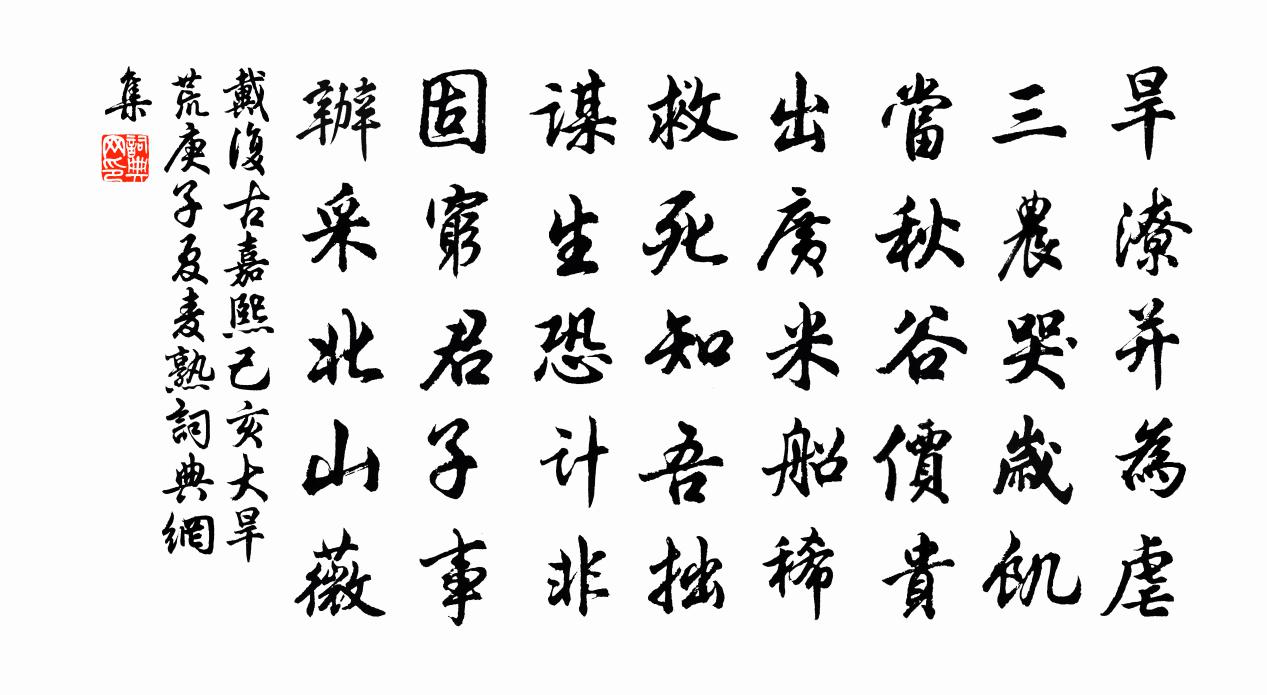 旱潦并為虐
三農哭歲飢
當秋谷價貴
出廣米船稀
救死知吾拙
謀生恐計非
固窮君子事
辦采北山薇
戴復古嘉熙己亥大旱
荒庚子夏麦熟詞典網
集
詞典
网印